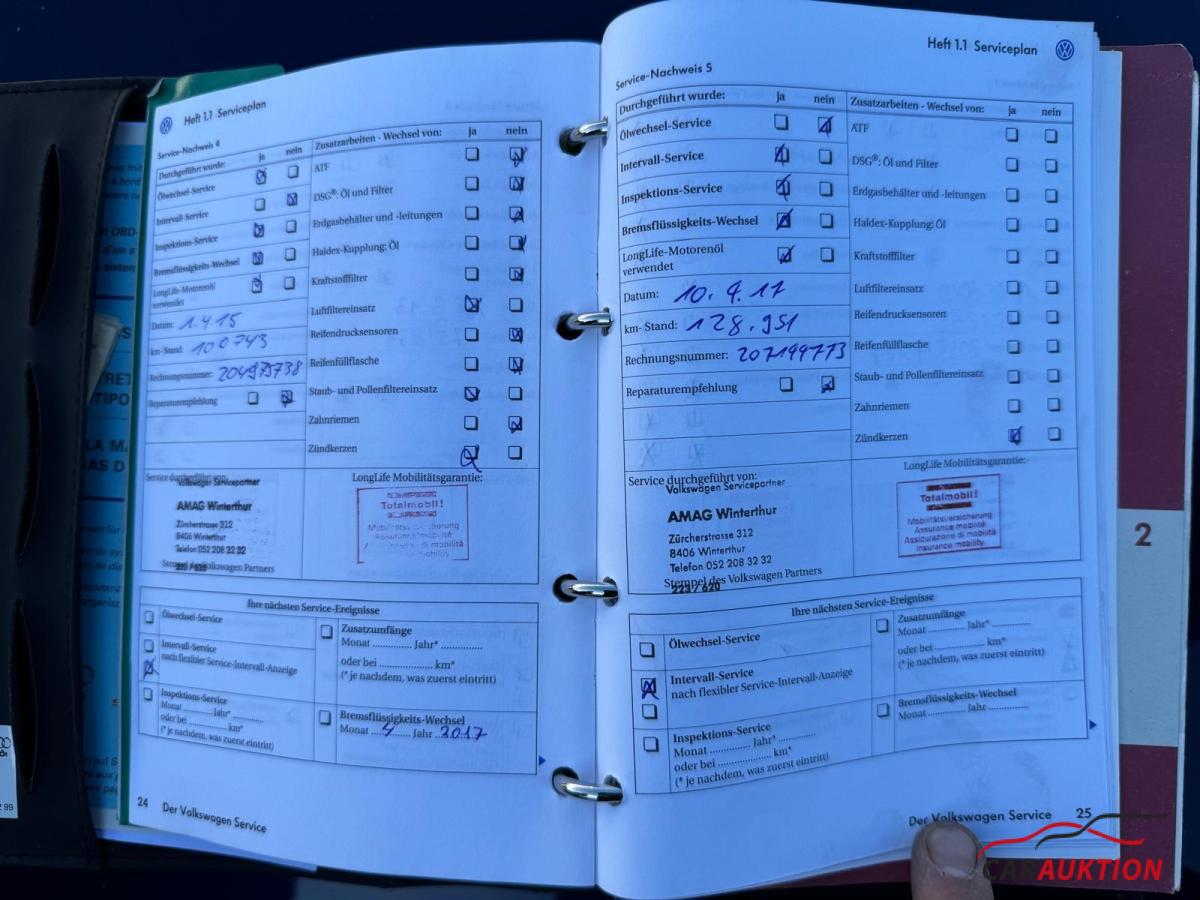 Heft 1.1 Serviceplan
Service-Nachweis 4
Durchgeführt wurde: ja nein
Ölwechsel-Service
Intervall-Service
Inspektions-Service
Bremsflüssigkeits-Wechsel
LongLife-Motorenöl
verwendet
Datum: 1.4.15
km-Stand: 100743
Rechnungsnummer:
Reparaturempfehlung
Zusatzarbeiten - Wechsel von: ja nein
ATF
DSG®: Öl und Filter
Erdgasbehälter und -leitungen
Haldex-Kupplung: Öl
Kraftstofffilter
Luftfiltereinsatz
Reifendrucksensoren
Reifenfüllflasche
Staub- und Pollenfiltereinsatz
Zahnriemen
Zündkerzen
Service durchgeführt von:
Volkswagen Servicepartner
AMAG Winterthur
Zürcherstrasse 312
8406 Winterthur
Telefon 052 208 32 32
Stempel des Volkswagen Partners
223 / 620
LongLife Mobilitätsgarantie:
Totalmobil!
Mobilitätsversicherung
Assurance mobilité
Assicurazione di mobilità
Ihre nächsten Service-Ereignisse
Ölwechsel-Service
Intervall-Service
nach flexibler Service-Intervall-Anzeige
Inspektions-Service
Monat ........ Jahr* ..............
oder bei .................. km*
(* je nachdem, was zuerst eintritt)
Zusatzumfänge
Monat ............ Jahr* .............
oder bei .................. km*
(* je nachdem, was zuerst eintritt)
Bremsflüssigkeits-Wechsel
Monat ...4... Jahr 2017
24 Der Volkswagen Service
Heft 1.1 Serviceplan
Service-Nachweis 5
Durchgeführt wurde: ja nein
Ölwechsel-Service
Intervall-Service
Inspektions-Service
Bremsflüssigkeits-Wechsel
LongLife-Motorenöl
verwendet
Datum: 10.4.17
km-Stand: 128.951
Rechnungsnummer: 207199773
Reparaturempfehlung
Zusatzarbeiten - Wechsel von: ja nein
ATF
DSG®: Öl und Filter
Erdgasbehälter und -leitungen
Haldex-Kupplung: Öl
Kraftstofffilter
Luftfiltereinsatz
Reifendrucksensoren
Reifenfüllflasche
Staub- und Pollenfiltereinsatz
Zahnriemen
Zündkerzen
Service durchgeführt von:
Volkswagen Servicepartner
AMAG Winterthur
Zürcherstrasse 312
8406 Winterthur
Telefon 052 208 32 32
Stempel des Volkswagen Partners
223 / 620
LongLife Mobilitätsgarantie:
Totalmobil!
Mobilitätsversicherung
Assurance mobilité
Assicurazione di mobilità
Insurance mobility
Ihre nächsten Service-Ereignisse
Ölwechsel-Service
Intervall-Service
nach flexibler Service-Intervall-Anzeige
Inspektions-Service
Monat ............ Jahr* ............
oder bei .................. km*
(* je nachdem, was zuerst eintritt)
Zusatzumfänge
Monat ............ Jahr* ............
oder bei .................. km*
(* je nachdem, was zuerst eintritt)
Bremsflüssigkeits-Wechsel
Monat ............ Jahr ............
Der Volkswagen Service 25
2
CARAUKTION